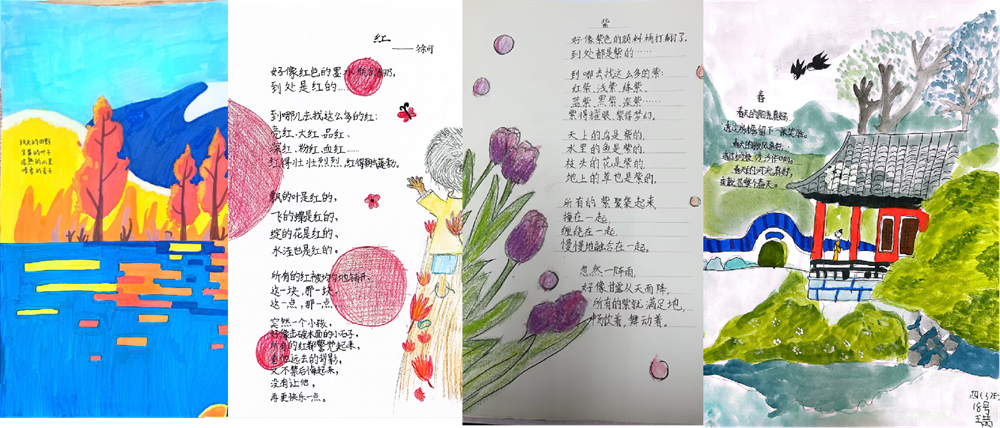 秋天的田野
金黄的叶子
红
——徐可
好像红色的墨水瓶
到处是红的…
到哪儿去找这么多的红:
亮红、大红、品红、
深红、粉红、血红……
红得壮壮烈烈,红得朝气蓬勃。
飘的叶是红的,
飞的蝶是红的,
绽的花是红的、
水洼也是红的。
所有的红被均匀地铺开
这一块,那一块,
这一点,那一点
突然一个小孩,
好像击破水面的小石子,
所有的红都警觉起来,
看他远去的背影,
又不禁后悔起来,
没有让他,
再更快乐一点。
紫
好像紫色的颜料桶打翻了,
到处都是紫的……
到哪去找这么多的紫:
红紫、浅紫、绛紫、
蓝紫、黑紫、淡紫……
紫得耀眼、紫得梦幻。
天上的鸟是紫的,
水里的鱼是紫的,
枝头的花是紫的,
地上的草也是紫的。
所有的紫聚集起来,
拥在一起,
缠绕在一起,
慢慢地融合在一起。
忽然一阵雨,
好像甘露从天而降,
所有的紫就满足地,
畅饮着,舞动着。
春
春天的阳光真好,
春天的微风真好,
春天的河水真好,
18号